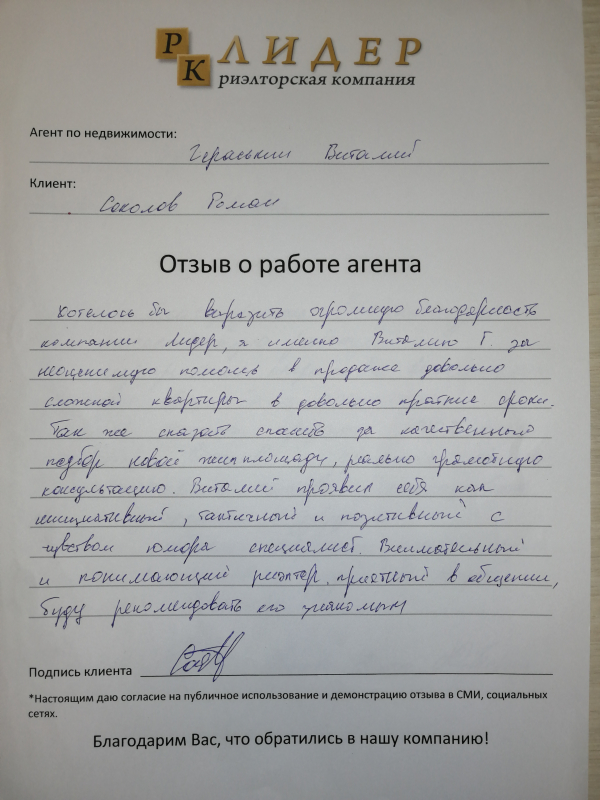 РК ЛИДЕР
риэлторская компания
Агент по недвижимости:
Гераськин Виталий
Клиент:
Соколов Роман
Отзыв о работе агента
Хотелось бы выразить огромную благодарность
компании Лидер, а именно Виталию Г. за
неоценимую помощь в продаже довольно
сложной квартиры в довольно краткие сроки.
Так же сказать спасибо за качественный
подбор новой жилплощади, реально грамотную
консультацию. Виталий проявил себя как
инициативный, тактичный и позитивный с
чувством юмора специалист. Внимательный
и понимающий риэлтер, приятный в общении,
буду рекомендовать его знакомым
Подпись клиента
*Настоящим даю согласие на публичное использование и демонстрацию отзыва в СМИ, социальных
сетях.
Благодарим Вас, что обратились в нашу компанию!